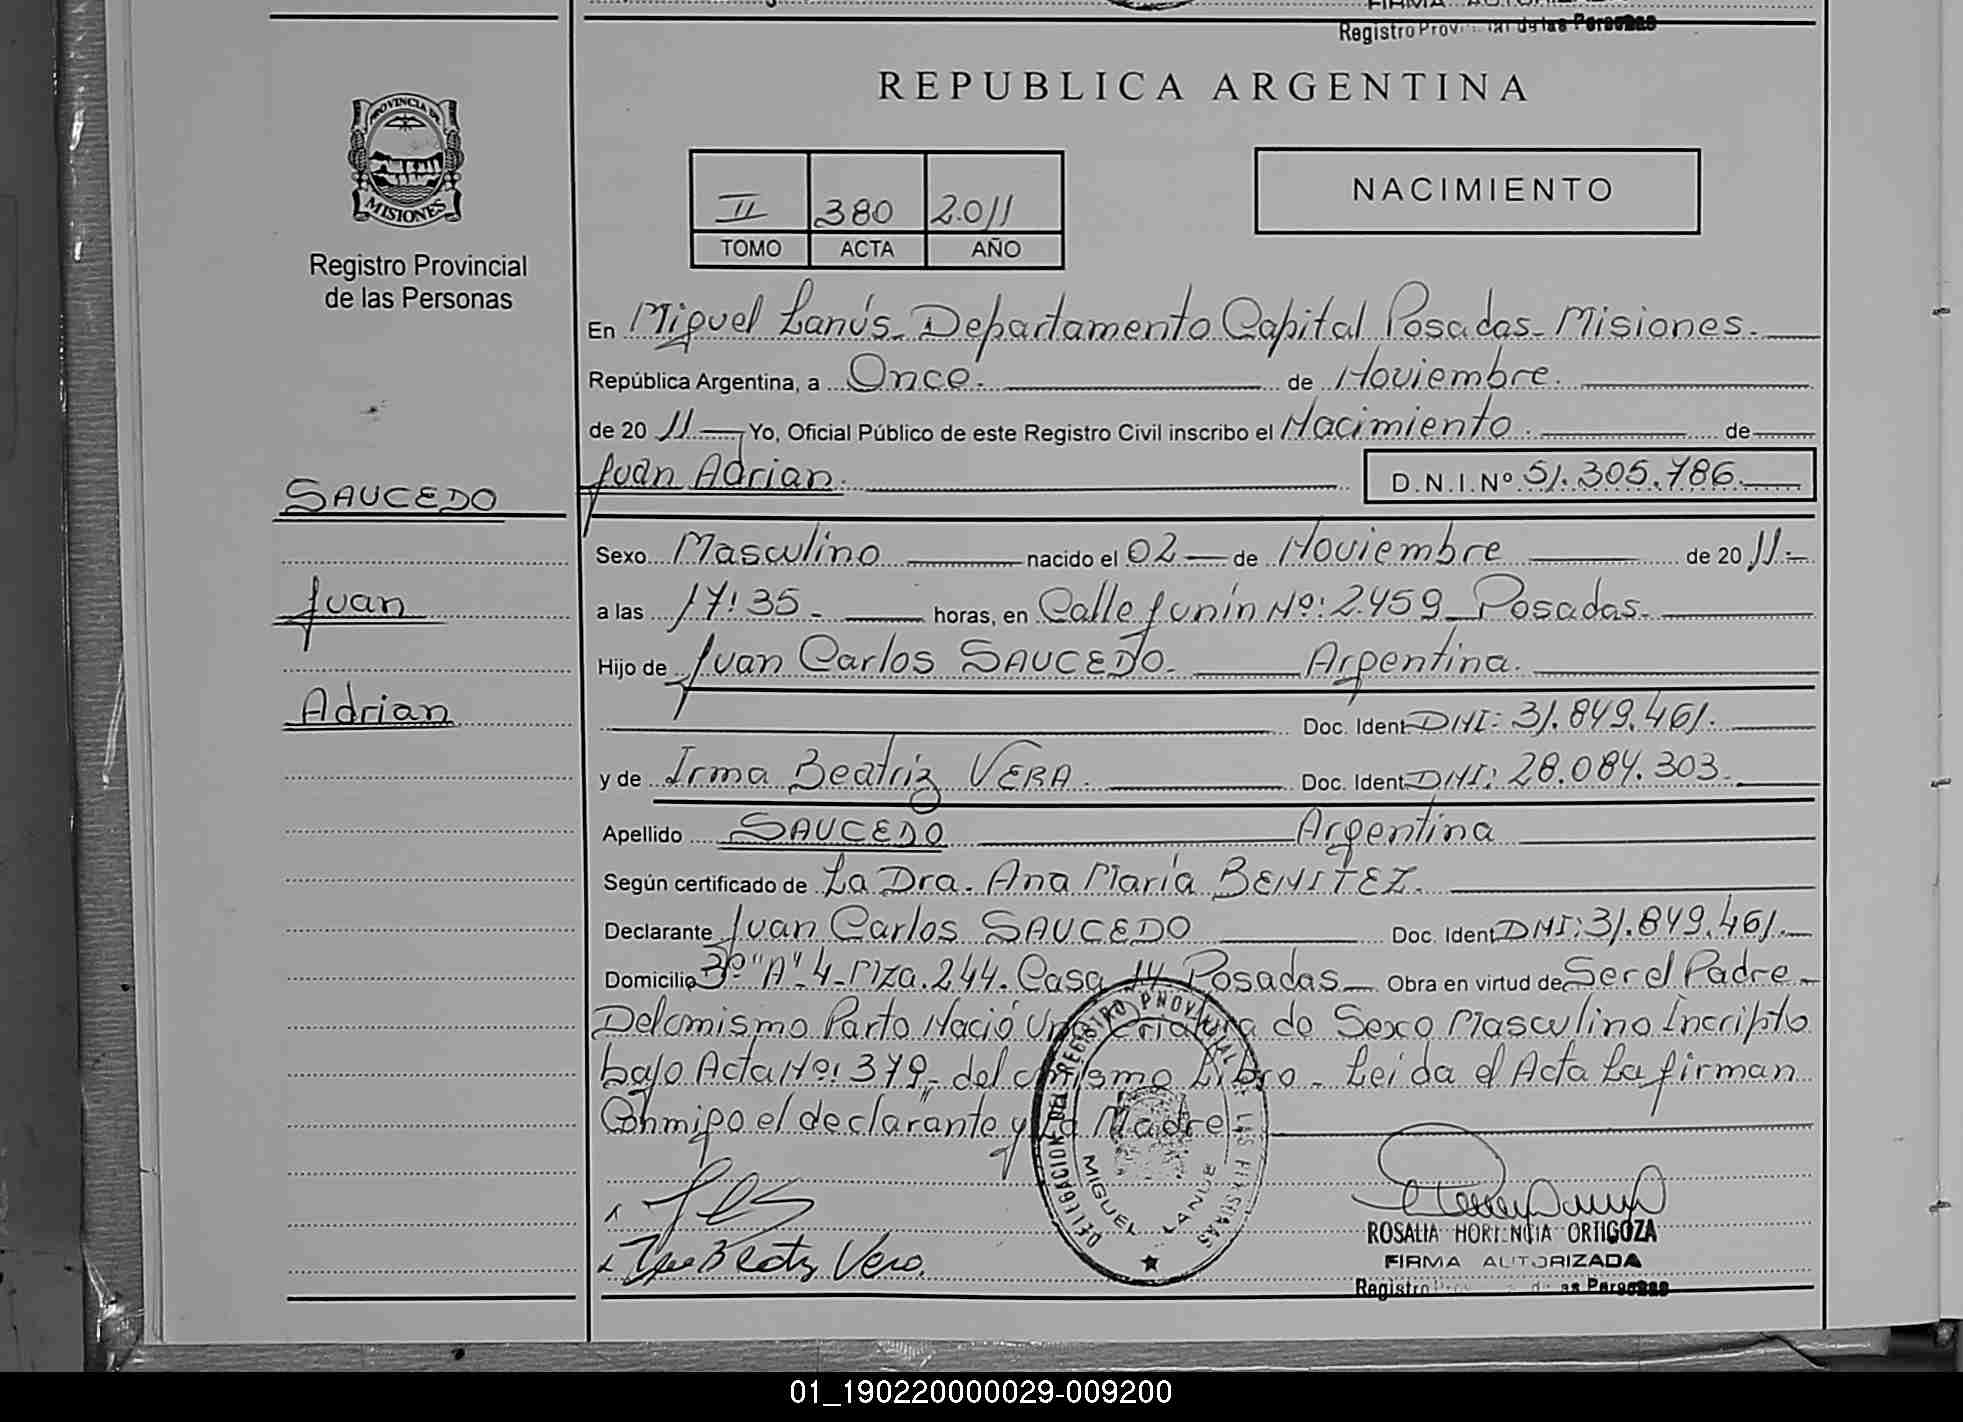 Registro Prov de las Personas
REPUBLICA ARGENTINA
PROVINCIA DE
MISIONES
Registro Provincial
de las Personas
II 380 2011
TOMO ACTA AÑO
NACIMIENTO
En Miguel Lanús - Departamento Capital Posadas - Misiones.
República Argentina, a Once. de Noviembre.
de 20 11 Yo, Oficial Público de este Registro Civil inscribo el Nacimiento. de
Juan Adrian. D.N.I.Nº 51.305.786.
SAUCEDO
Juan
Adrian
Sexo Masculino nacido el 02 de Noviembre de 20 11.-
a las 17:35 - horas, en Calle Junín Nº: 2.459 - Posadas.
Hijo de Juan Carlos SAUCEDO. Argentina.
Doc. Ident DNI: 31.849.461.
y de Irma Beatriz VERA. Doc. Ident DNI: 28.084.303.
Apellido SAUCEDO Argentina
Según certificado de La Dra. Ana María BENITEZ.
Declarante Juan Carlos SAUCEDO Doc. Ident DNI: 31.849.461.
Domicilio 3º "A" - 4 - Mza. 244. Casa 14 Posadas - Obra en virtud de Ser el Padre -
Del mismo Parto Nació Una Criatura de Sexo Masculino Incripto
bajo Acta Nº: 379 - del mismo Libro - Leída el Acta La firman
Conmigo el declarante y La Madre
DELEGACION DEL REGISTRO PROVINCIAL DE LAS PERSONAS
MIGUEL LANUS
Beatriz Vera.
ROSALIA HORTENCIA ORTIGOZA
FIRMA AUTORIZADA
Registro Pro de las Personas
01_190220000029-009200